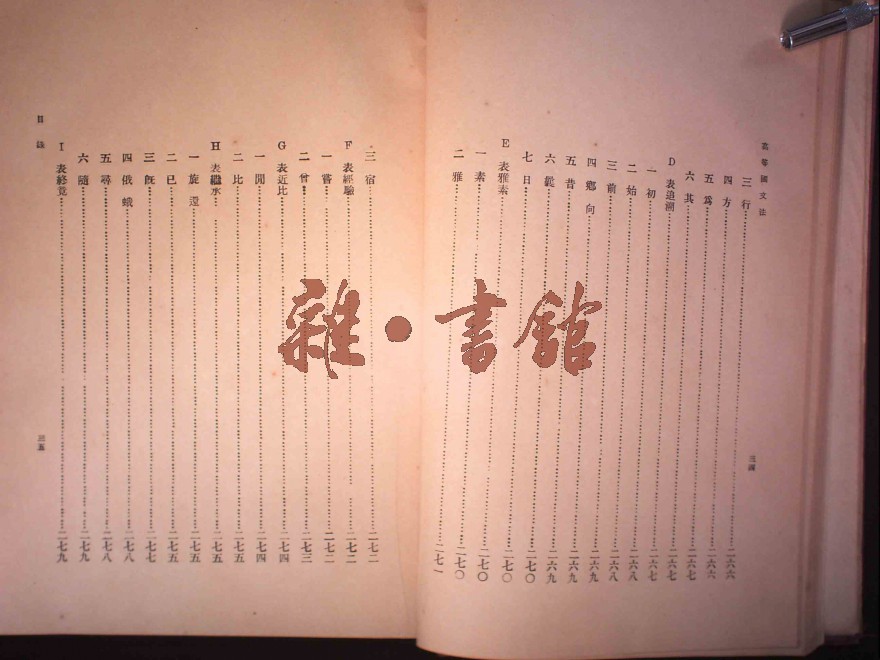 高等國文法
三 行 二六六
四 方 二六六
五 爲 二六七
六 其 二六七
D 表追溯 二六七
一 初 二六八
二 始 二六八
三 前 二六九
四 鄉 向 二六九
五 昔 二六九
六 曩 二七〇
七 日 二七〇
E 表雅素 二七〇
一 素 二七〇
二 雅 二七一
三四
三 宿 二七二
F 表經驗 二七二
一 嘗 二七二
二 曾 二七三
G 表近比 二七四
一 間 二七四
二 比 二七五
H 表繼承 二七五
一 旋 還 二七五
二 已 二七五
三 旣 二七七
四 俄 蛾 二七八
五 尋 二七八
六 隨 二七九
I 表終竟 二七九
目錄
三五
雜·書館